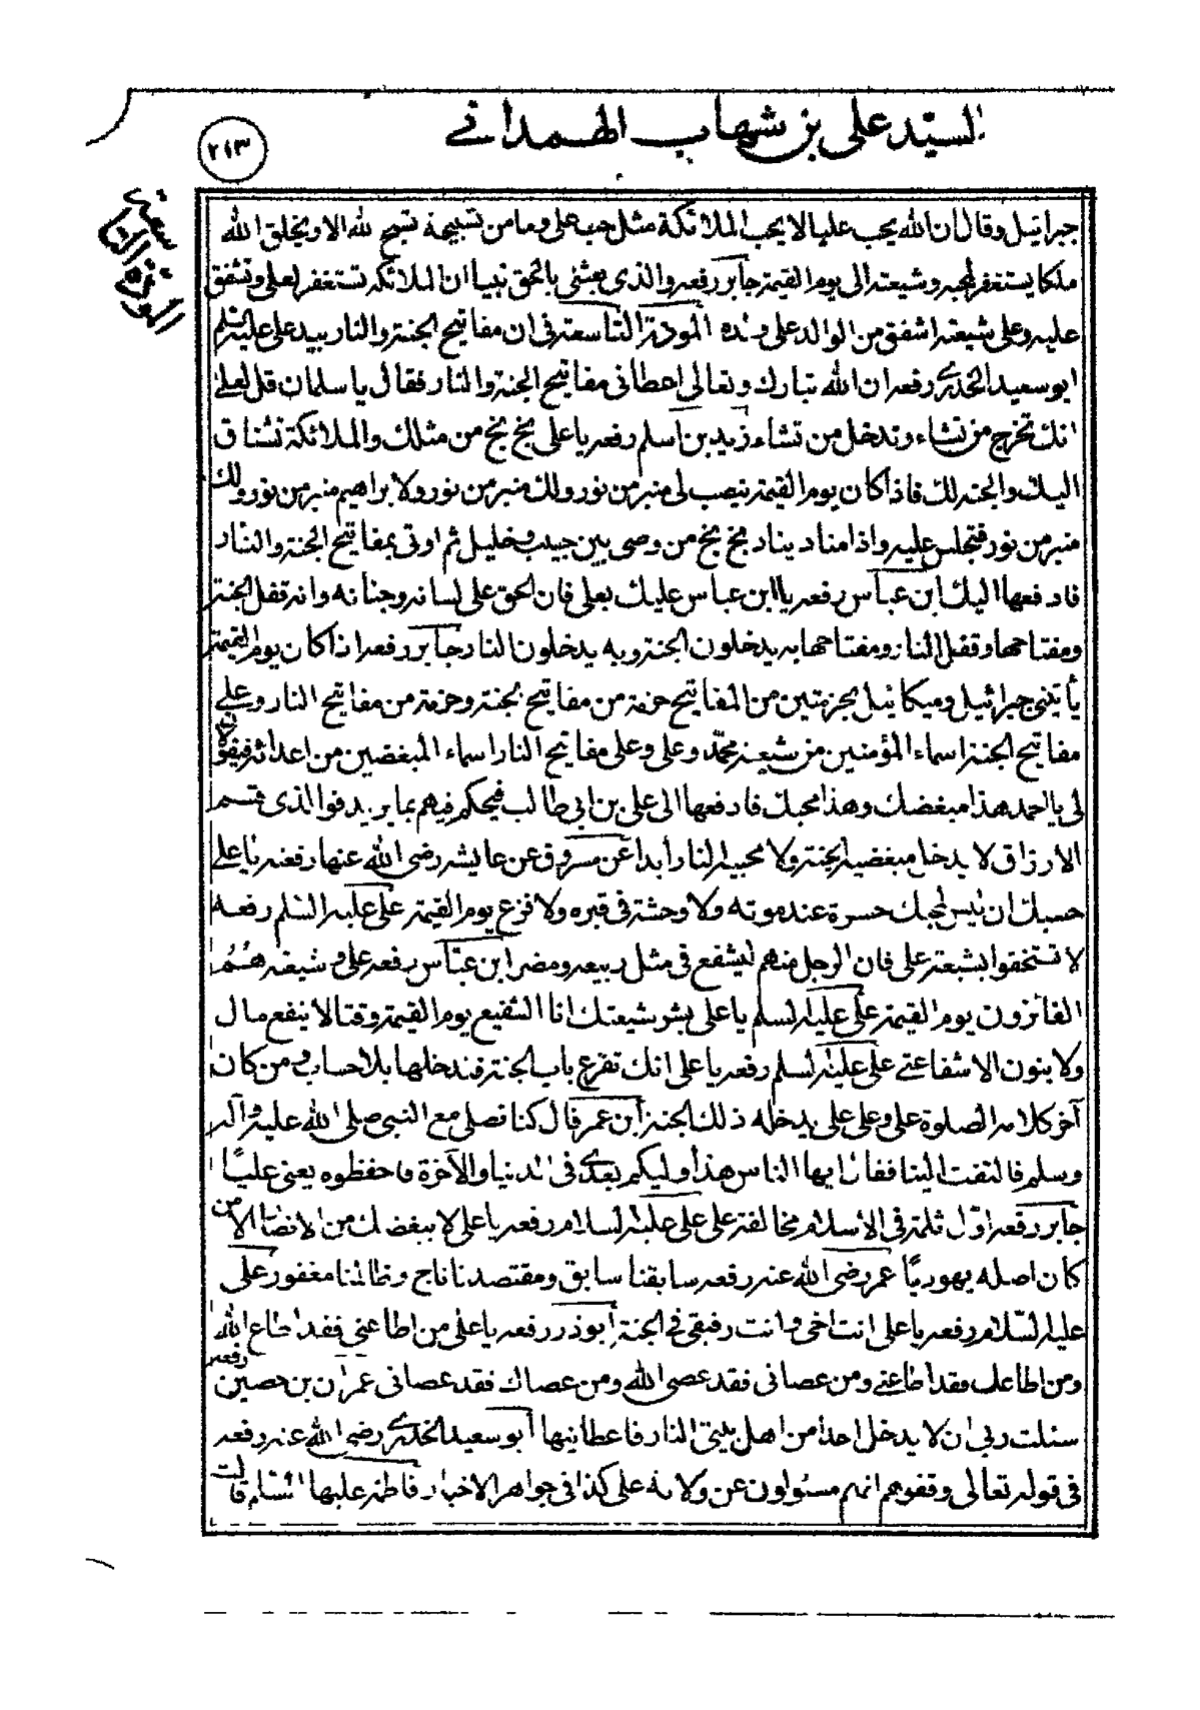 السيّد علی بن شهاب الهمدانے
٢١٣
المودة التاسعة
جبرائيل وقال ان الله يحب عليا لا يحب الملائكة مثل حب علی وما من تسبيحة تسبح لله الا ويخلق الله
ملكا يستغفر لمحبه وشيعته الی يوم القيمة جابر رفعه والذی بعثنی بالحق نبيا ان الملائكة تستغفر لعلی وتشفق
عليه وعلی شيعته اشفق من الوالد علی ولده المودة التاسعة فی ان مفاتيح الجنة والنار بيد علی عليه السلم
ابو سعيد الخدرے رفعه ان الله تبارك وتعالی اعطانی مفاتيح الجنة والنار فقال يا سلمان قل لعلی
انك تخرج من تشاء وتدخل من تشاء زيد بن اسلم رفعه يا علی بخ بخ من مثلك والملائكة تشتاق
اليك والجنة لك فاذا كان يوم القيمة ينصب لی منبر من نور ولك منبر من نور ولابراهيم منبر من نور ولك
منبر من نور فتجلس عليه واذا مناد يناد بخ بخ من وصی بين حبيب وخليل ثم اوتی بمفاتيح الجنة والنار
فادفعها اليك ابن عباس رفعه يا ابن عباس عليك بعلی فان الحق علی لسانه وجنانه وانه قفل الجنة
ومفتاحها وقفل النار ومفتاحها به يدخلون الجنة وبه يدخلون النار جابر رفعه اذا كان يوم القيمة
يأتينی جبرائيل وميكائيل بحزمتين من المفاتيح حزمة من مفاتيح الجنة وحزمة من مفاتيح النار وعلی
مفاتيح الجنة اسماء المؤمنين من شيعة محمّد وعلی وعلی مفاتيح النار اسماء المبغضين من اعدائه فيقولان
لی يا احمد هذا مبغضك وهذا محبك فادفعها الی علی بن ابی طالب فيحكم فيهم بما يريد فوالذی قسم
الارزاق لا يدخل مبغضيه الجنة ولا محبيه النار أبدا عن مسروق عن عايشه رضی الله عنها رفعته يا علی
حسبك ان ليس لمحبك حسرة عند موته ولا وحشة فی قبره ولا فزع يوم القيمة علی عليه السّلم رفعه
لا تستخفوا بشيعة علی فان الرجل منهم ليشفع فی مثل ربيعه ومضر ابن عبّاس رفعه علی وشيعته هُمُ
الفائزون يوم القيمة علی عليه السلم يا علی بشر شيعتك انا الشفيع يوم القيمة وقتا لا ينفع مال
ولا بنون الا شفاعتے علی عليه السلم رفعه يا علی انك تقرع باب الجنة فتدخلها بلا حساب ومن كان
آخر كلامه الصلوة علی وعلی علی يدخله ذلك الجنة ابن عمر قال كنا نصلی مع النبی صلی الله عليه وآله
وسلم فالتفت الينا فقال ايها الناس هذا وليكم بعدے فی الدنيا والآخرة فاحفظوه يعنی عليًا
جابر رفعه اوّل ثلمة فی الاسلام مخالفة علی علی عليه السلام رفعه يا علی لا يبغضك من الانصار الا من
كان اصله يهوديًا عمر رضی الله عنه رفعه سابقنا سابق ومقتصدنا ناج وظالمنا مغفور علی
عليه السّلام رفعه يا علی انت اخی وانت رفيقی فی الجنة ابوذر رفعه يا علی من اطاعنی فقد اطاع الله
ومن اطاعك فقد اطاعنے ومن عصانی فقد عصی الله ومن عصاك فقد عصانی عمران بن حصين رفعه
سئلت ربی ان لا يدخل احدا من اهل بيتی النار فاعطانيها أبو سعيد الخدرے رضی الله عنه رفعه
فی قوله تعالی وقفوهم انهم مسئولون عن ولاية علی كذا فی جواهر الاخبار فاطمة عليها السّلم قالت